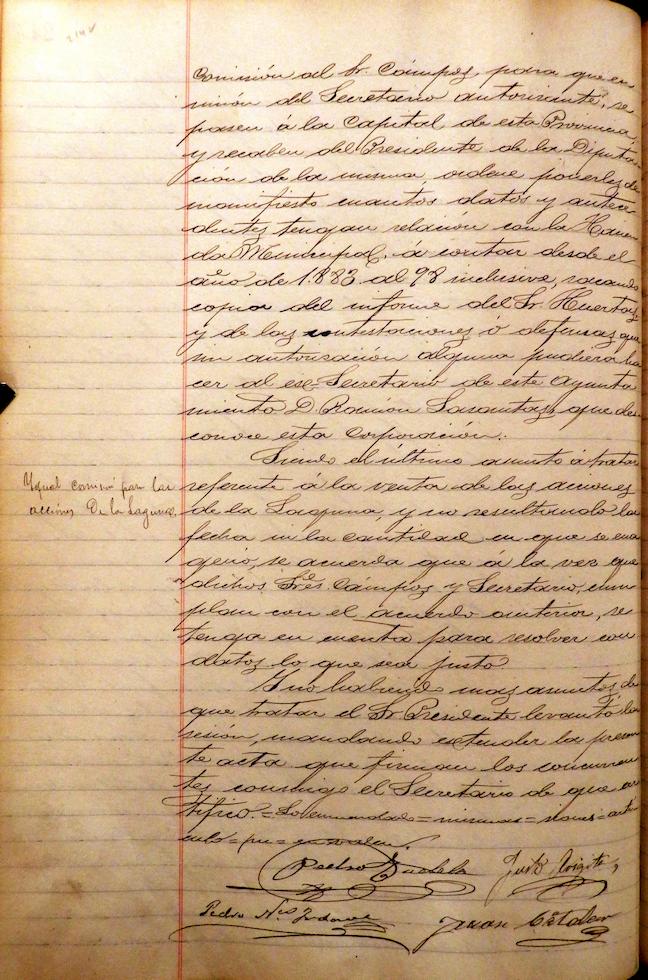 214 v
comisión al Sr. Cámpos, para que en
unión del Secretario autorizante, se
pasen á la Capital de esta Provincia
y recaben del Presidente de la Diputa
ción de la misma, ordene ponerles de
manifiesto cuantos datos y antece
dentes tengan relación con la Hacien
da Municipal, á contar desde el
año de 1.883 al 98 inclusive, sacando
copia del informe del Sr. Huertas,
y de las contestaciones o defensas que
sin autorización alguna pudiera ha
cer al ex-Secretario de este Ayunta
miento D. Ramón Lasantas, que des
conoce esta Corporación.
Siendo el último asunto á tratar
Ygual comisión para las
acciones De la Laguna.
referente á la venta de las acciones
de la Laguna, y no resultando la
fecha ni la cantidad en que se ena
genó, se acuerda que á la vez que
dichos Sres. Cámpos y Secretario, cum
plan con el acuerdo anterior, se
tenga en cuenta para resolver con
datos lo que sea justo
Y no habiendo mas asuntos de
que tratar el Sr. Presidente levantó la
sesión, mandando extender la presen
te acta que firman los concurren
tes conmigo el Secretario de que cer
tifico.= Lo enmendado = mismas =
Pedro
Justo
Pedro
Juan